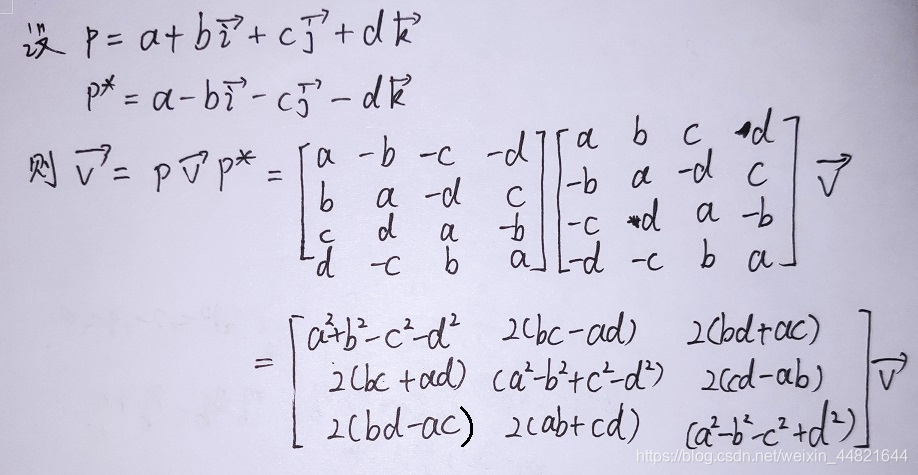 设 p = a + b\vec{i} + c\vec{j} + d\vec{k}
p* = a - b\vec{i} - c\vec{j} - d\vec{k}
则 \vec{v} = p \vec{v} p* = [a -b -c -d] [a b c d] \vec{v}
[b a -d c] [-b a -d c]
[c d a -b] [-c d a -b]
[d -c b a] [-d -c b a]
= [a²+b²-c²-d² 2(bc-ad) 2(bd+ac)] \vec{v}
[2(bc+ad) (a²-b²+c²-d²) 2(cd-ab)]
[2(bd-ac) 2(ab+cd) (a²-b²-c²+d²)]
https://blog.csdn.net/weixin_44821644